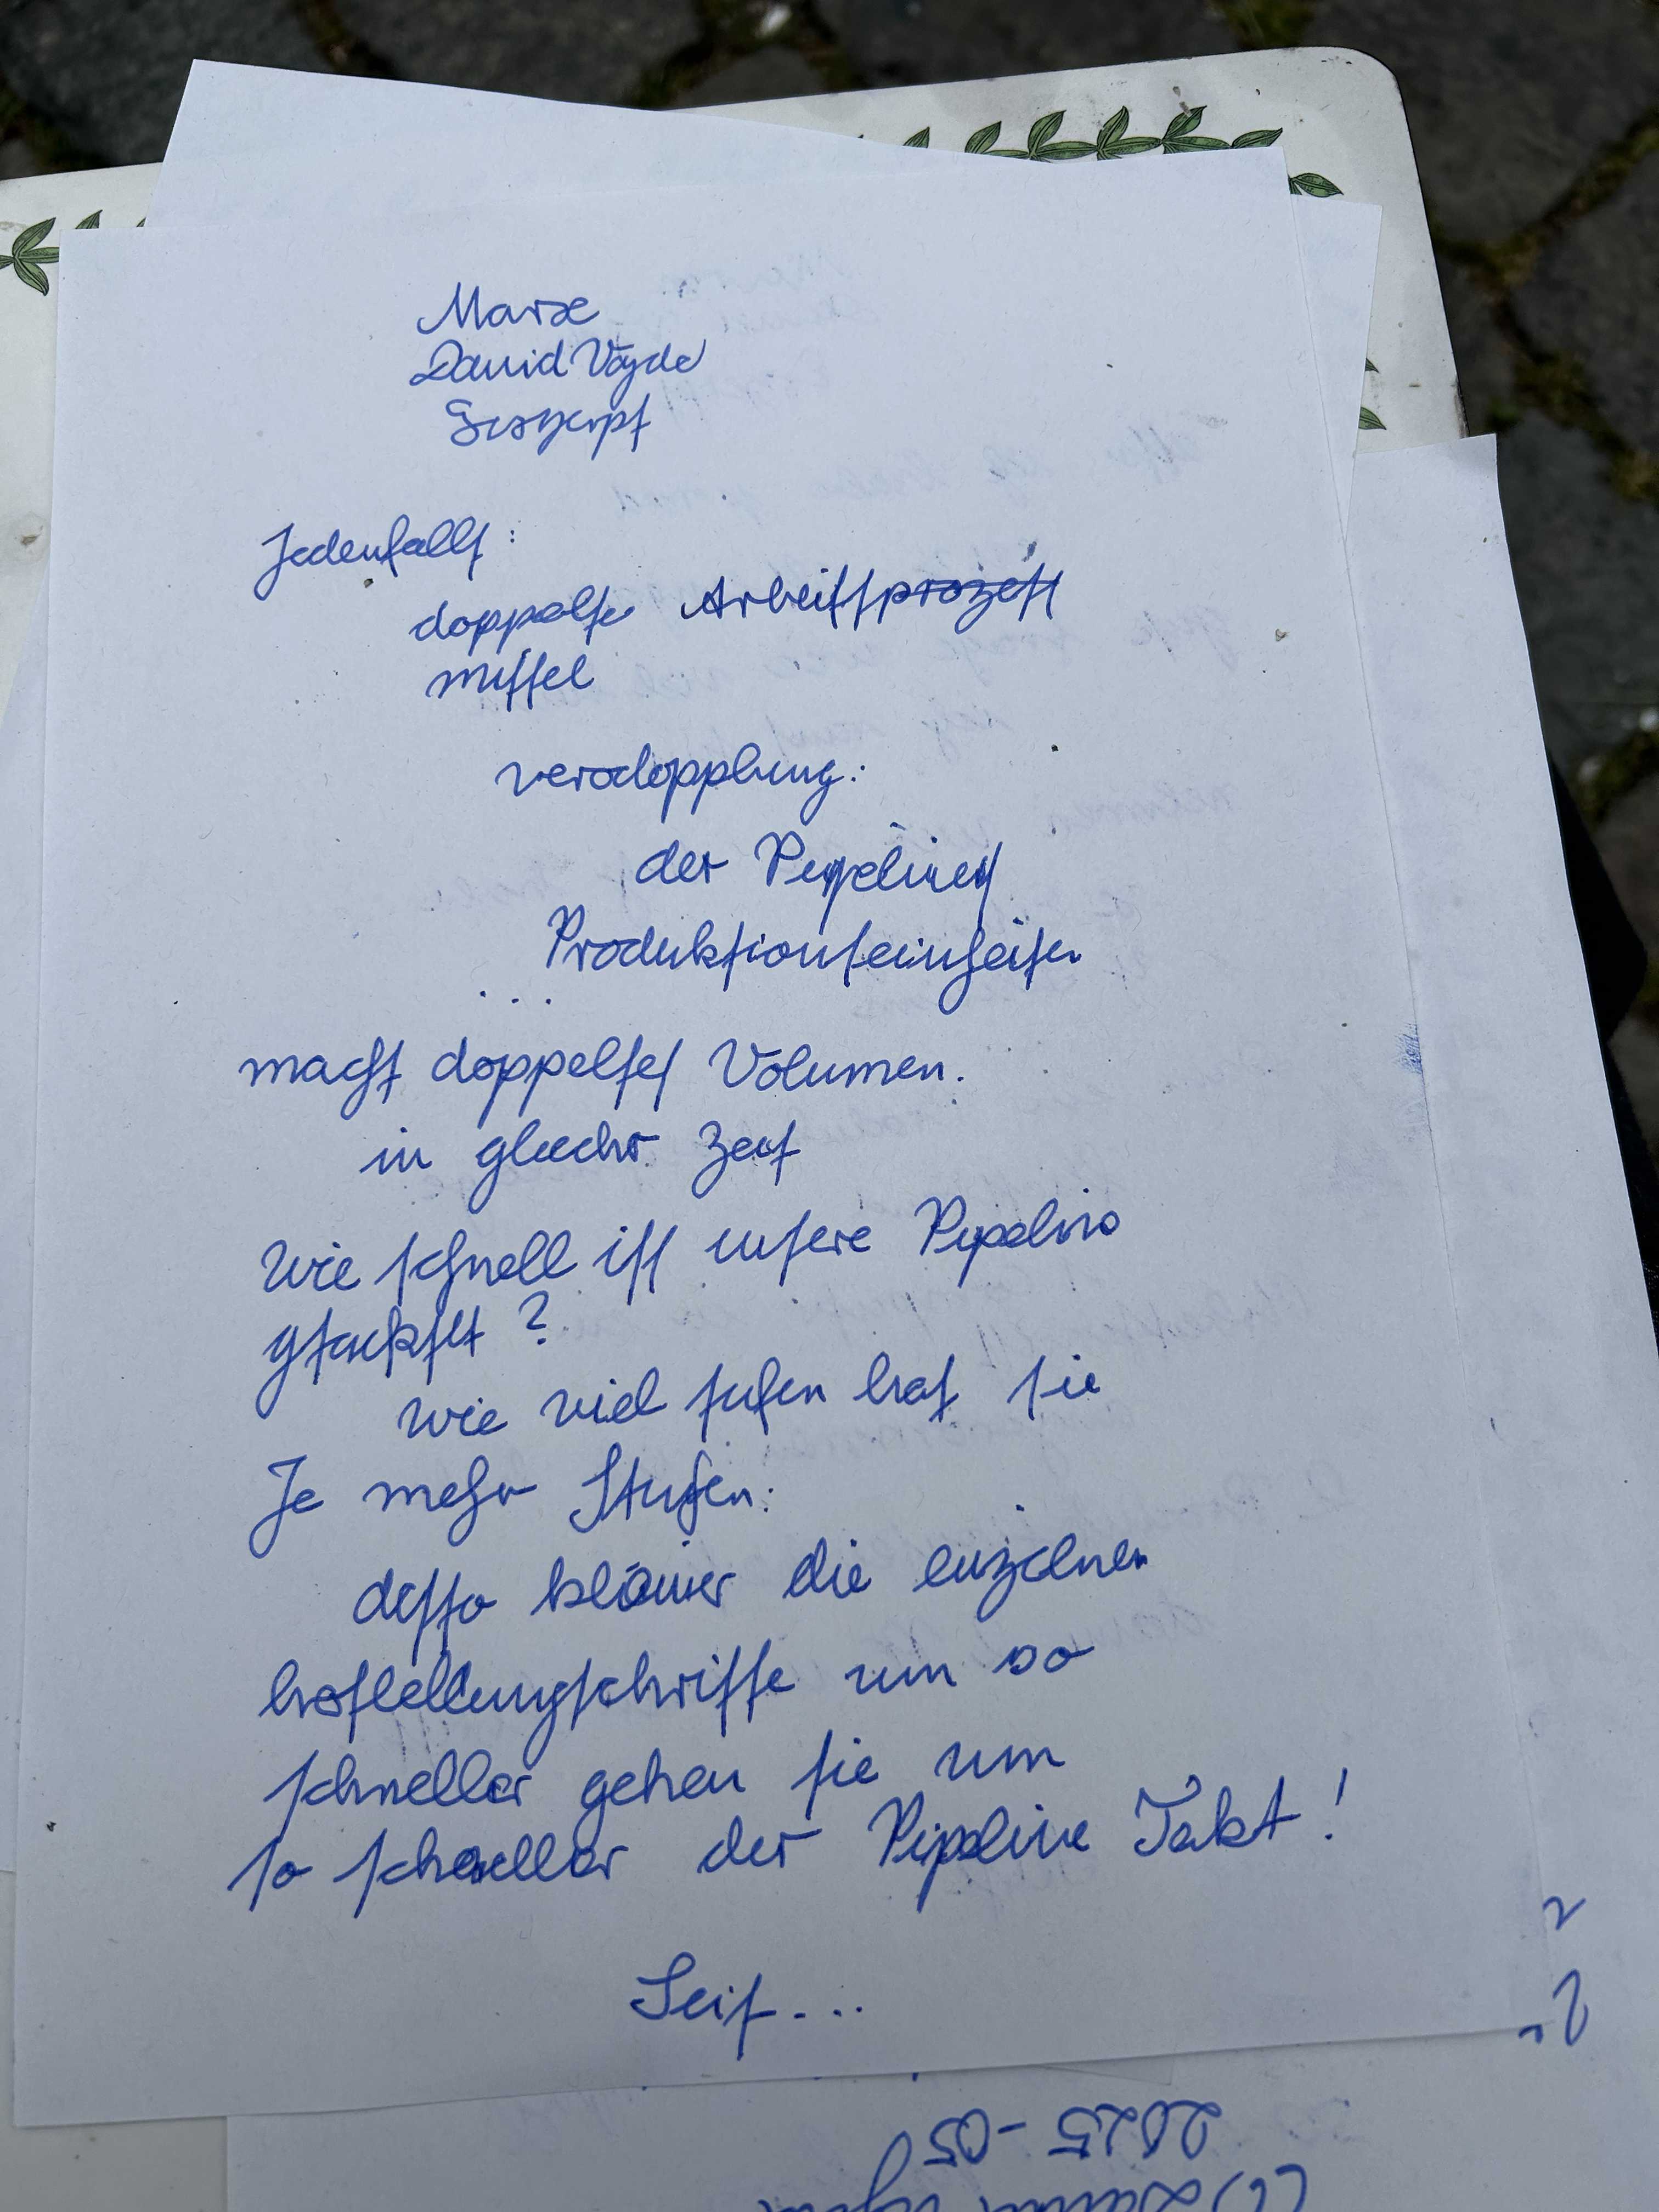 Marx
David Vajda
Exzerpt
Jedenfalls:
doppelte Arbeitsprozess
mittel
verdopplung:
der Pipelines
Produktionseinheiten
...
macht doppeltes Volumen.
in gleichr Zeit
Wie schnell ist unsere Pipeline
gtacktet ?
wie viel stufen hat sie
Je mehr Stufen:
desto kleiner die einzelnen
herstellungschritte um so
schneller gehen sie um
so schneller der Pipeline Takt!
Seit...
2025-05